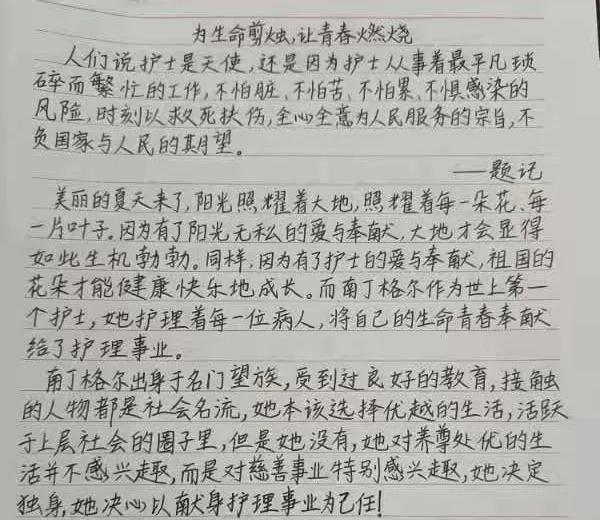 为生命剪烛,让青春燃烧
人们说护士是天使,还是因为护士从事着最平凡琐
碎而繁忙的工作,不怕脏、不怕苦、不怕累、不惧感染的
风险,时刻以救死扶伤,全心全意为人民服务的宗旨,不
负国家与人民的期望。
——题记
美丽的夏天来了,阳光照耀着大地,照耀着每一朵花、每
一片叶子。因为有了阳光无私的爱与奉献,大地才会显得
如此生机勃勃。同样,因为有了护士的爱与奉献,祖国的
花朵才能健康快乐地成长。而南丁格尔作为世上第一
个护士,她护理着每一位病人,将自己的生命青春奉献
给了护理事业。
南丁格尔出身于名门望族,受到过良好的教育,接触
的人物都是社会名流,她本该选择优越的生活,活跃
于上层社会的圈子里,但是她没有,她对养尊处优的生
活并不感兴趣,而是对慈善事业特别感兴趣,她决定
独身,她决心以献身护理事业为己任!